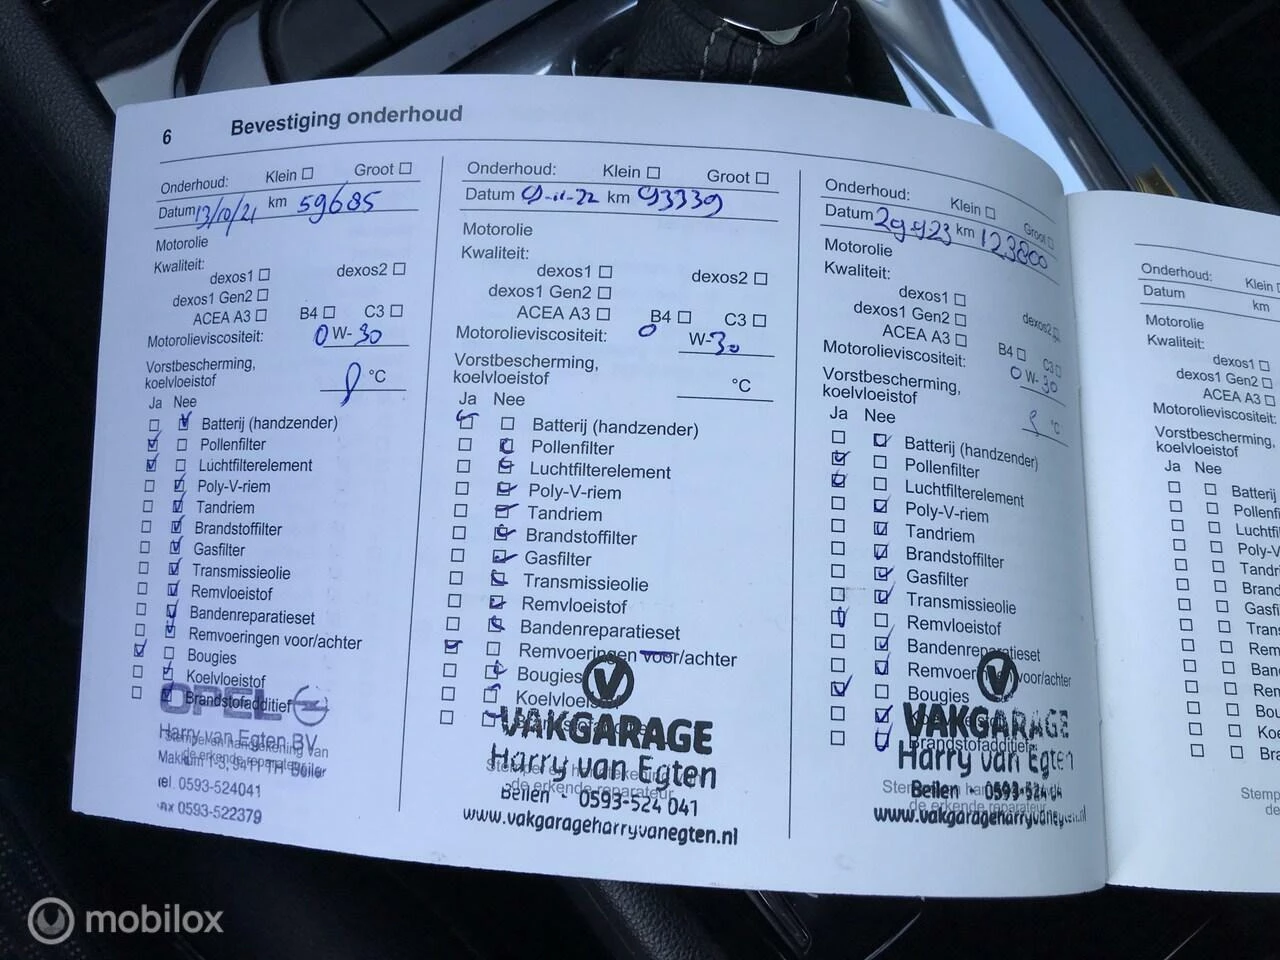 6 Bevestiging onderhoud
Onderhoud: Klein Groot
Datum 13/10/21 km 59685
Motorolie
Kwaliteit:
dexos1 dexos2
dexos1 Gen2
ACEA A3 B4 C3
Motorolieviscositeit: 0 W-30
Vorstbescherming,
koelvloeistof °C
Ja Nee
Batterij (handzender)
Pollenfilter
Luchtfilterelement
Poly-V-riem
Tandriem
Brandstoffilter
Gasfilter
Transmissieolie
Remvloeistof
Bandenreparatieset
Remvoeringen voor/achter
Bougies
Koelvloeistof
Brandstofadditief
OPEL
Harry van Egten BV
Stempel en handtekening van
de erkende reparateur
tel. 0593-524041
fax 0593-522379
Onderhoud: Klein Groot
Datum 9-11-22 km 93339
Motorolie
Kwaliteit:
dexos1 dexos2
dexos1 Gen2
ACEA A3 B4 C3
Motorolieviscositeit: 0 W-30
Vorstbescherming,
koelvloeistof °C
Ja Nee
Batterij (handzender)
Pollenfilter
Luchtfilterelement
Poly-V-riem
Tandriem
Brandstoffilter
Gasfilter
Transmissieolie
Remvloeistof
Bandenreparatieset
Remvoeringen voor/achter
Bougies
Koelvloeis
VAKGARAGE
Harry van Egten
Beilen - 0593-524 041
www.vakgarageharryvanegten.nl
Onderhoud: Klein Groot
Datum km 123800
Motorolie
Kwaliteit:
dexos1
dexos1 Gen2 dexos2
ACEA A3 B4 C3
Motorolieviscositeit: 0 W-30
Vorstbescherming,
koelvloeistof °C
Ja Nee
Batterij (handzender)
Pollenfilter
Luchtfilterelement
Poly-V-riem
Tandriem
Brandstoffilter
Gasfilter
Transmissieolie
Remvloeistof
Bandenreparatieset
Remvoer voor/achter
Bougies
VAKGARAGE
Brandstofadditief
Harry van Egten
Beilen - 0593-524 04
www.vakgarageharryvanegten.nl
Onderhoud: Klein
Datum km
Motorolie
Kwaliteit:
dexos1
dexos1 Gen2
ACEA A3
Motorolieviscositeit:
Vorstbescherming,
koelvloeistof
Ja Nee
Batterij
Pollenfi
Luchtfil
Poly-V-
Tandri
Brand
Gasfi
Trans
Rem
Band
Rem
Bou
Koe
Bra
Stemp
de
mobilox